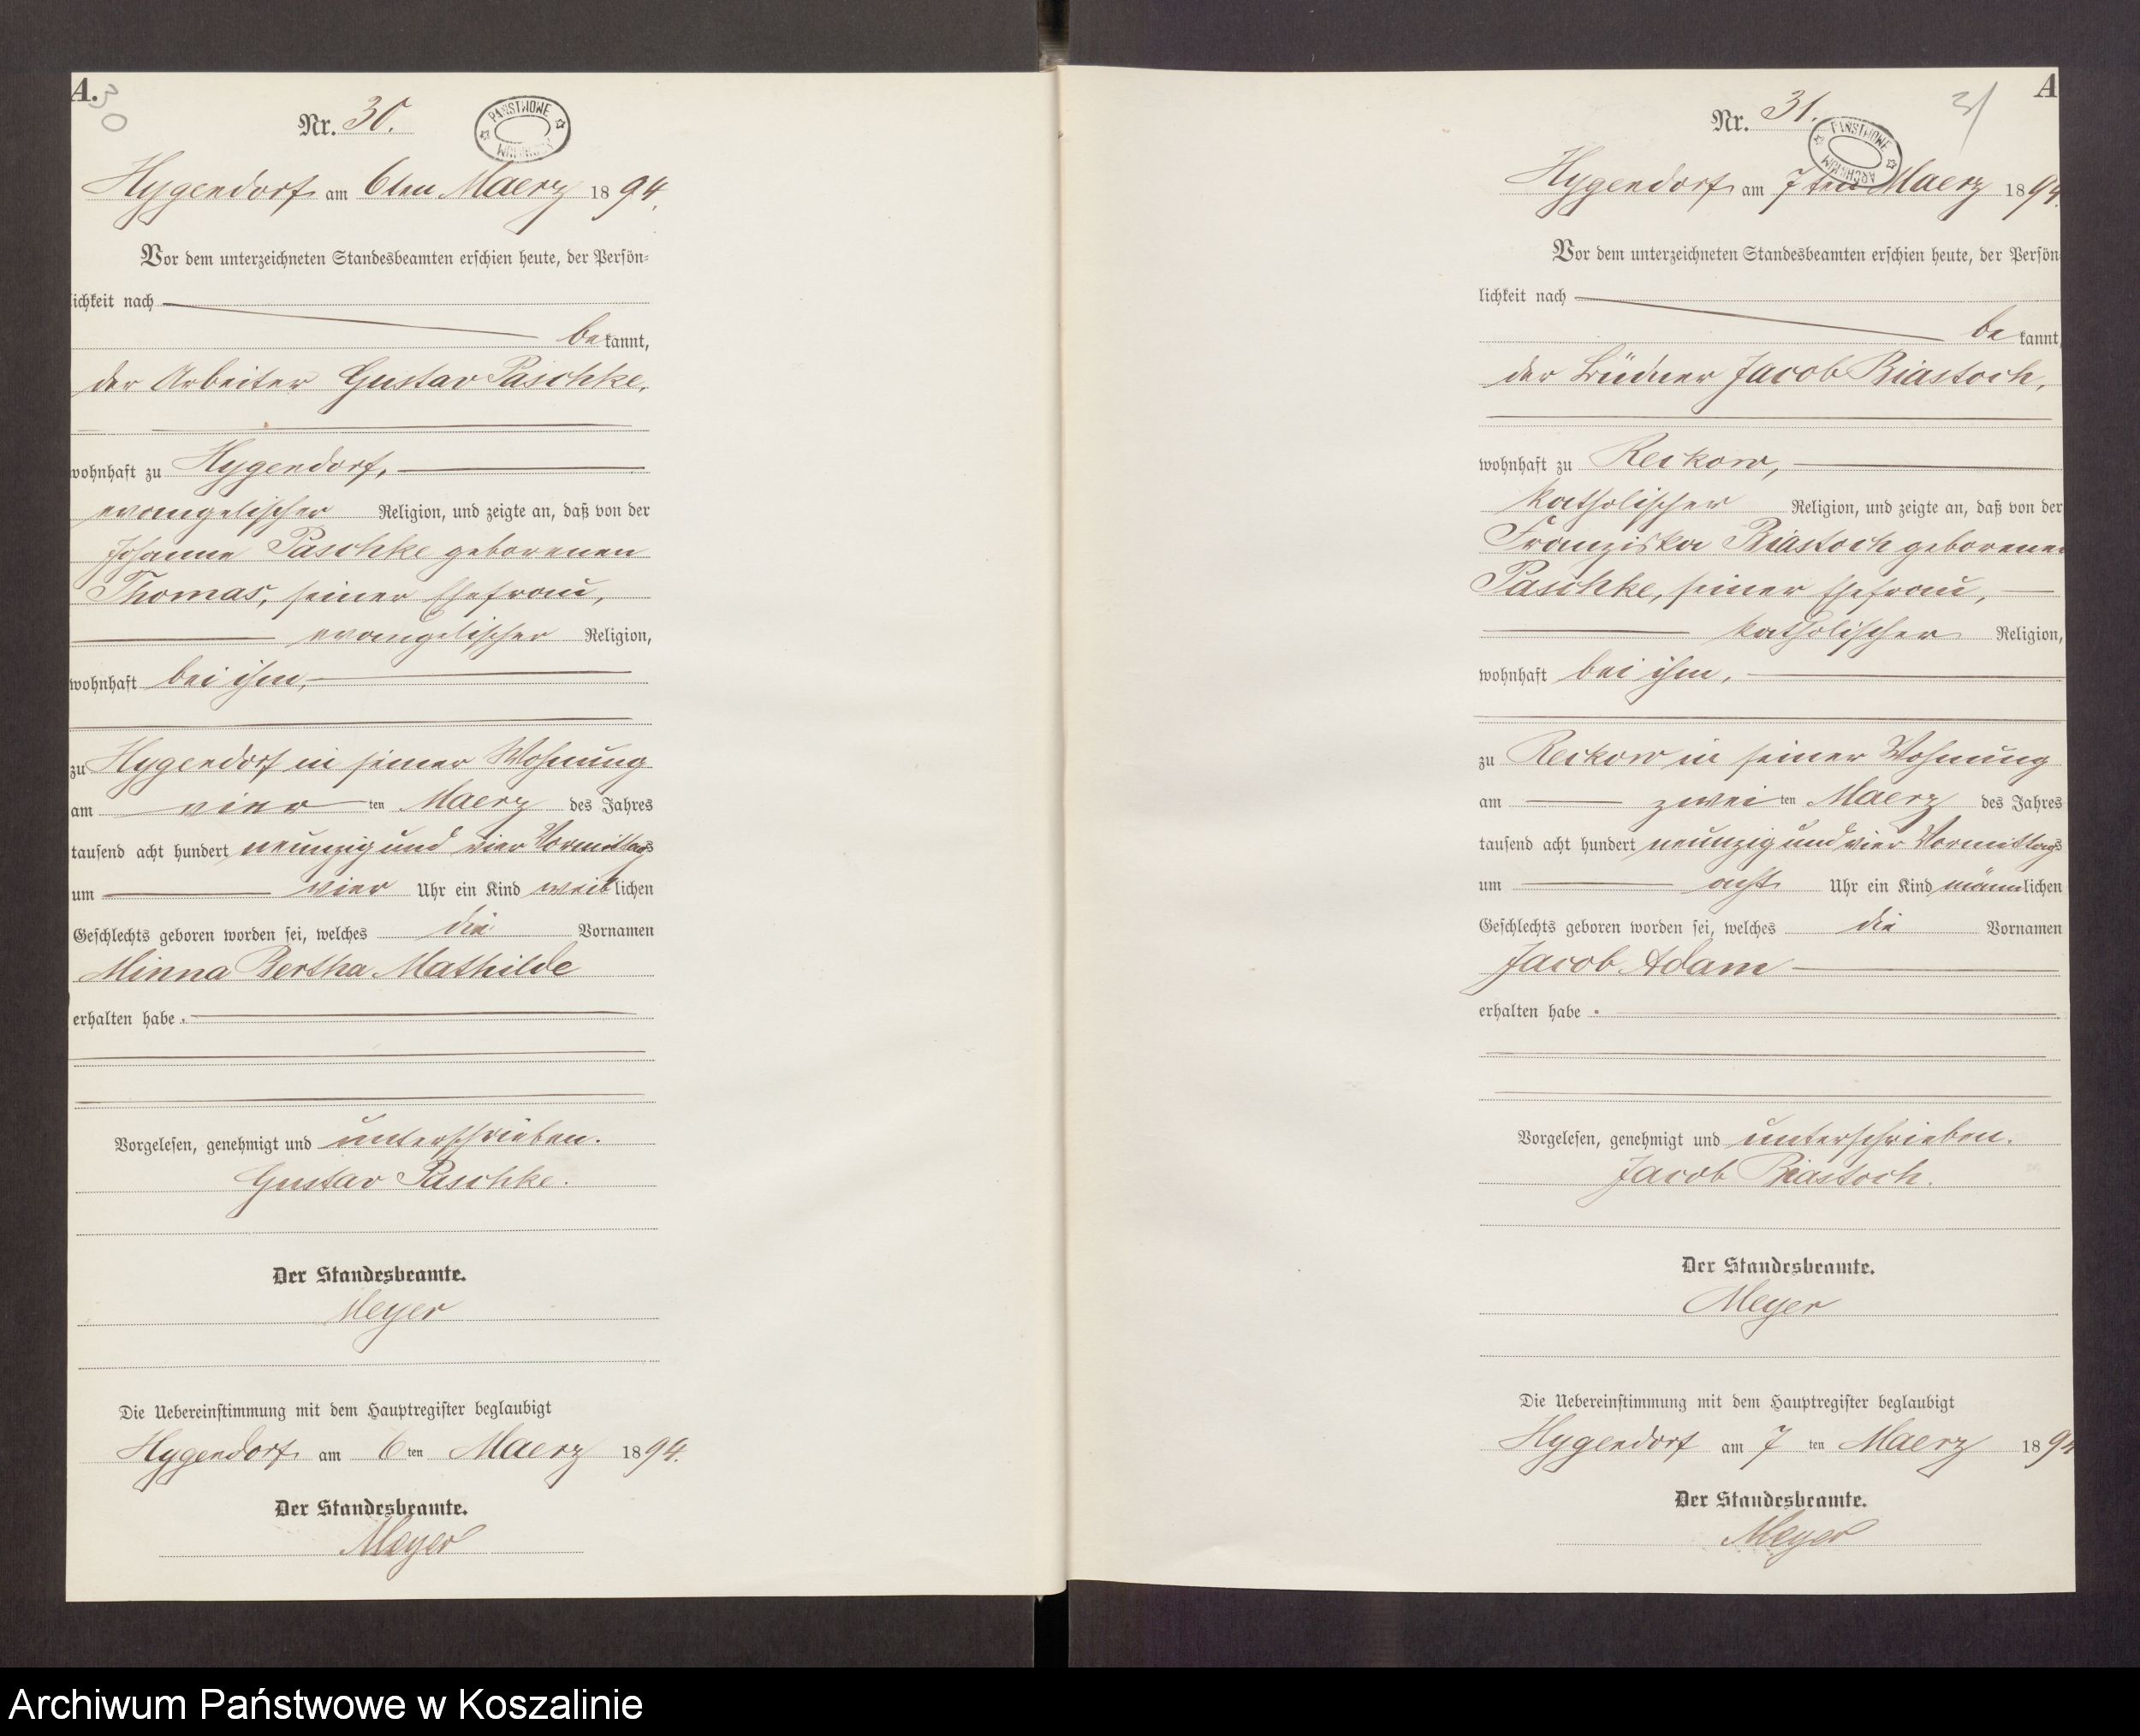 A.
30
Nr. 30.
PAŃSTWOWE
Hygendorf am 6ten Maerz 1894.
Vor dem unterzeichneten Standesbeamten erschien heute, der Persön-
lichkeit nach
bekannt,
der Arbeiter Gustav Paschke,
wohnhaft zu Hygendorf,
evangelischer Religion, und zeigte an, daß von der
Johanne Paschke geborenen
Thomas, seiner Ehefrau,
evangelischer Religion,
wohnhaft bei ihm,
zu Hygendorf in seiner Wohnung
am vier ten Maerz des Jahres
tausend acht hundert neunzig und vier Vormittags
um vier Uhr ein Kind weiblichen
Geschlechts geboren worden sei, welches die Vornamen
Minna Bertha Mathilde
erhalten habe.
Vorgelesen, genehmigt und unterschrieben.
Gustav Paschke.
Der Standesbeamte.
Meyer
Die Uebereinstimmung mit dem Hauptregister beglaubigt
Hygendorf am 6 ten Maerz 1894.
Der Standesbeamte.
Meyer
A
31
Nr. 31.
PAŃSTWOWE ARCHIWUM
Hygendorf am 7ten Maerz 1894.
Vor dem unterzeichneten Standesbeamten erschien heute, der Persön
lichkeit nach
bekannt,
der Büdner Jacob Biastoch,
wohnhaft zu Reckow,
katholischer Religion, und zeigte an, daß von der
Franziska Biastoch geborenen
Paschke, seiner Ehefrau,
katholischer Religion,
wohnhaft bei ihm,
zu Reckow in seiner Wohnung
am zwei ten Maerz des Jahres
tausend acht hundert neunzig und vier Vormittags
um acht Uhr ein Kind männlichen
Geschlechts geboren worden sei, welches die Vornamen
Jacob Adam
erhalten habe.
Vorgelesen, genehmigt und unterschrieben.
Jacob Biastoch.
Der Standesbeamte.
Meyer
Die Uebereinstimmung mit dem Hauptregister beglaubigt
Hygendorf am 7 ten Maerz 1894
Der Standesbeamte.
Meyer
Archiwum Państwowe w Koszalinie